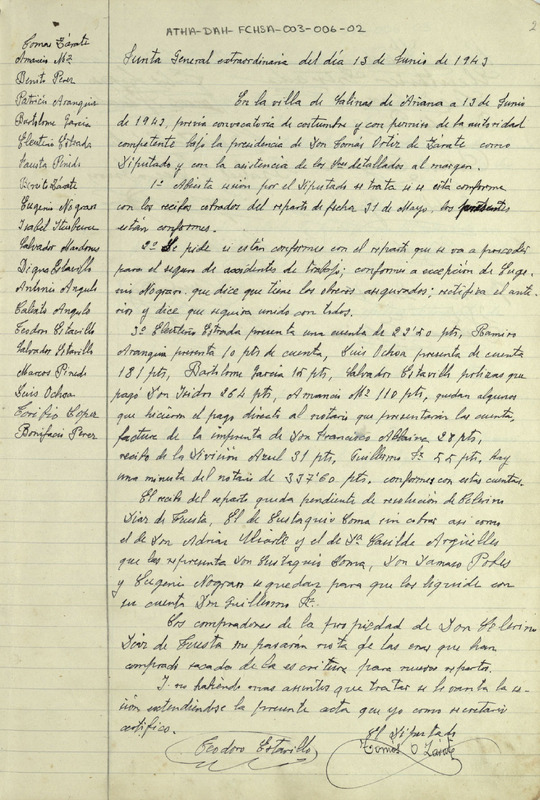 ATHA-DAH-FCHSA-003-006-02
2
Tomas Zárate
Amancio Mz
Benito Perez
Patricio Aranguiz
Bartolome Garcia
Eleuterio Estrada
Fausta Pinedo
Benito Zárate
Eugenio Nograro
Isabel
Salvador Mardones
Digno Estavillo
Antonio Angulo
Calixto Angulo
Teodoro Estavillo
Salvador Estavillo
Marcos Pinedo
Luis Ochoa
Porfirio Lopez
Bonifacio Perez
Junta General extraordinaria del día 13 de Junio de 1943
En la villa de Salinas de Añana a 13 de Junio
de 1943, previa convocatoria de costumbre y con permiso de la autoridad
competente bajo la presidencia de Don Tomás Ortiz de Zárate como
Diputado y con la asistencia de los Sres detallados al margen.
1º Abierta sesión por el Diputado se trata si se está conforme
con los recibos cobrados del reparto de fecha 31 de Mayo, los presentes
están conformes.
2º Se pide si están conformes con el reparto que se va a proceder
para el seguro de accidentes de trabajo; conformes a excepción de Euge-
nio Nograro que dice que tiene los obreros asegurados; rectifica el ante-
rior y dice que seguira unido con todos.
3º Eleuterio Estrada presenta una cuenta de 22'50 pts, Ramiro
Aranguiz presenta 10 pts de cuenta, Luis Ochoa presenta de cuenta
181 pts, Bartolome Garcia 15 pts, Salvador Estavillo polizas que
pagó Don Isidro 264 pts, Amancio Mz 110 pts, quedan algunos
que hicieron el pago directo al notario que presentarán la cuenta,
factura de la imprenta de Don Francisco 28 pts,
recibo de la División Azul 31 pts, Guillermo Fz 55 pts, hay
una minuta del notario de 337'60 pts. conformes con estas cuentas.
El recibo del reparto queda pendiente de resolución de Celerino
Diaz de Tuesta, El de Eustaquio Loma sin cobrar asi como
el de Don Adrián y el de Dª Casilda Argüelles
que les representa Don Eustaquio Loma, Don Damaso Pobes
y Eugenio Nograro se quedan para que los liquide con
su cuenta Don Guillermo Fz.
Los compradores de la propiedad de Don Celerino
Diaz de Tuesta me pasarán nota de las eras que han
comprado sacado de la escritura para nuevos repartos.
Y no habiendo mas asuntos que tratar se levanta la se-
sión extendiendose la presente acta que yo como secretario
certifico.
El Diputado
Teodoro Estavillo
Tomás O Zárate